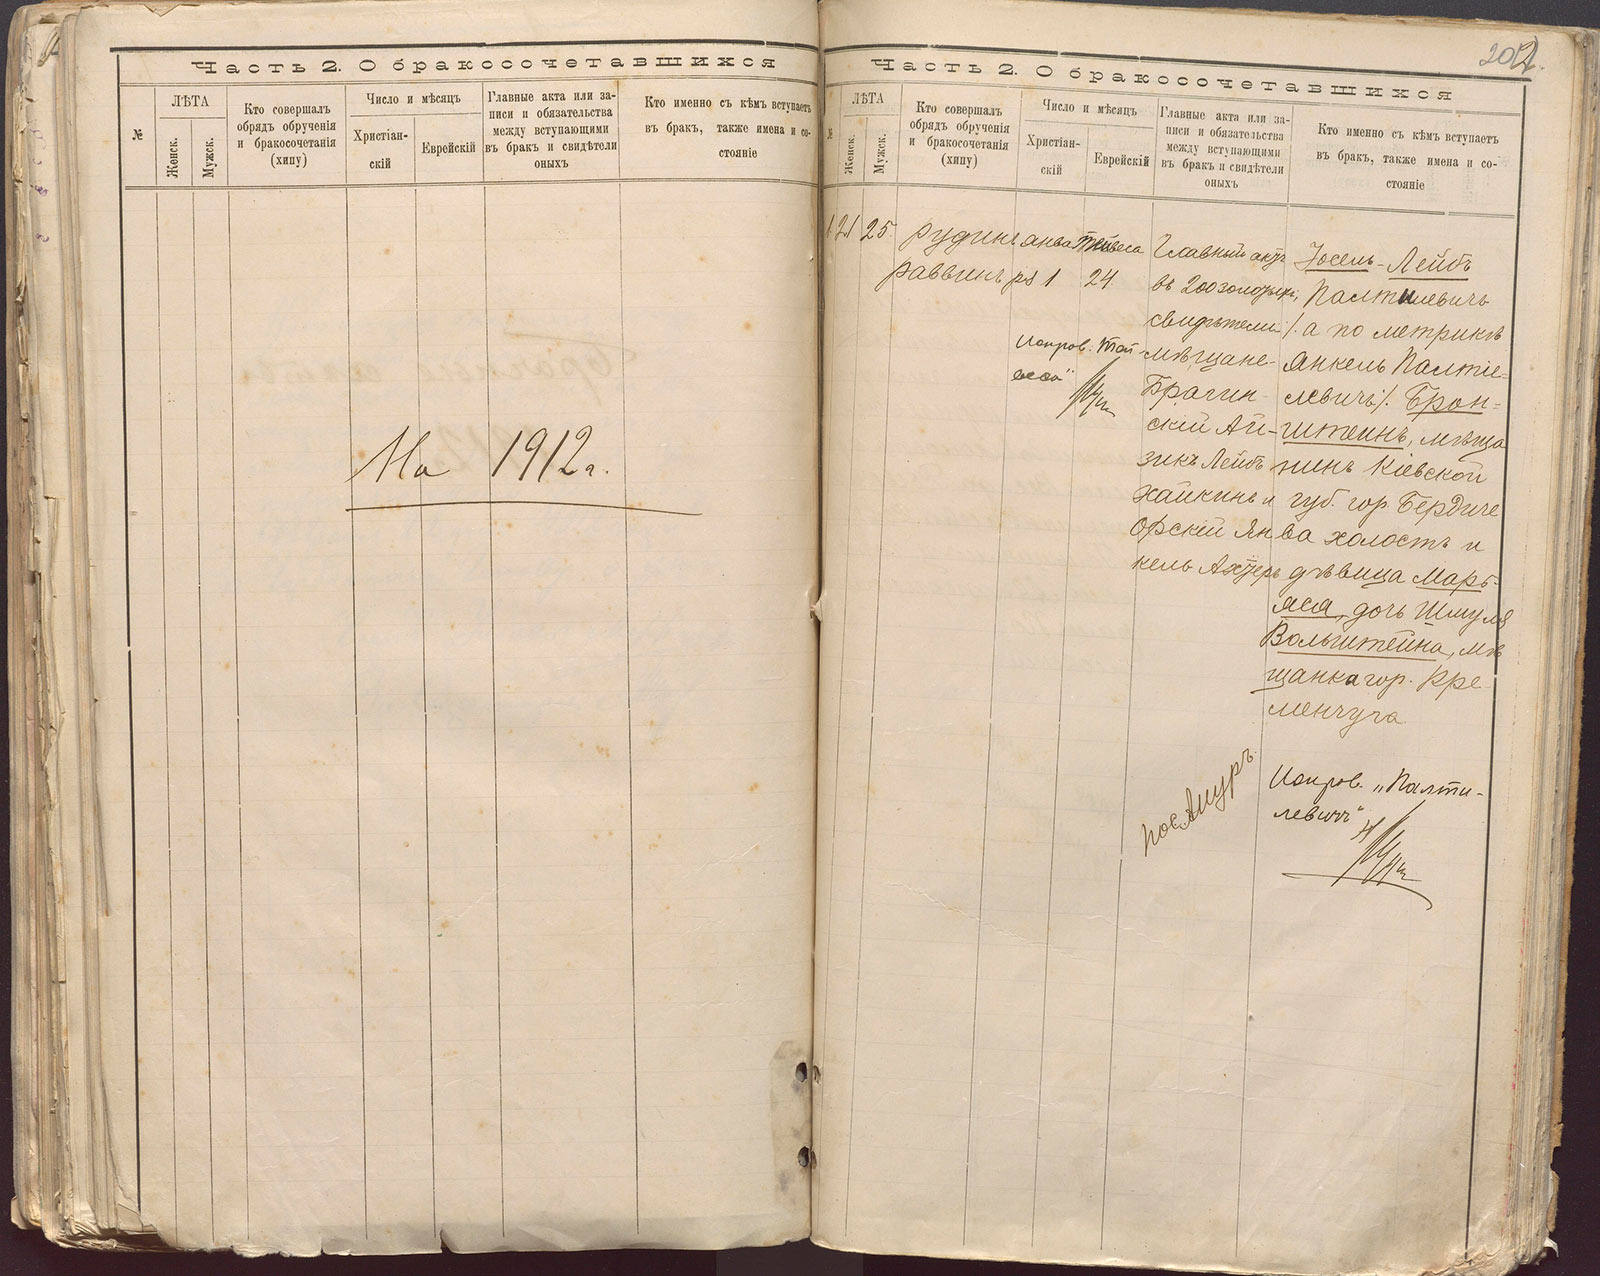 Часть 2. О бракосочетавшихся
№
ЛѢТА
Женск.
Мужск.
Кто совершалъ
обрядъ обрученія
и бракосочетанія
(хипу)
Число и мѣсяцъ
Христіан-
скій
Еврейскій
Главные акта или за-
писи и обязательства
между вступающими
въ бракъ и свидѣтели
оныхъ
Кто именно съ кѣмъ вступаетъ
въ бракъ, также имена и со-
стояніе
На 1912 г.
Часть 2. О бракосочетавшихся
№
ЛѢТА
Женск.
Мужск.
Кто совершалъ
обрядъ обрученія
и бракосочетанія
(хипу)
Число и мѣсяцъ
Христіан-
скій
Еврейскій
Главные акта или за-
писи и обязательства
между вступающими
въ бракъ и свидѣтели
оныхъ
Кто именно съ кѣмъ вступаетъ
въ бракъ, также имена и со-
стояніе
1
21
25
раввинъ
янва
ря 1
24
Исправ.
Главный актъ
въ 200 золотыхъ,
свидѣтели
мѣщане-
Брагин-
скій Ай-
зикъ Лейбъ
Хайкинъ и
Орскій Ян
кель
Іосель-Лейбъ
Палтилевичъ
/: а по метрикѣ
Янкель Палтіе-
левичъ:/ Брон-
штейнъ, мѣща
нинъ Кіевской
губ. гор. Бердиче
ва холостъ и
дѣвица Марь-
яся, дочь Шмуля
Вольштейна, мѣ
щанка гор. Кре-
менчуга
Исправ. „Палти-
левичъ"